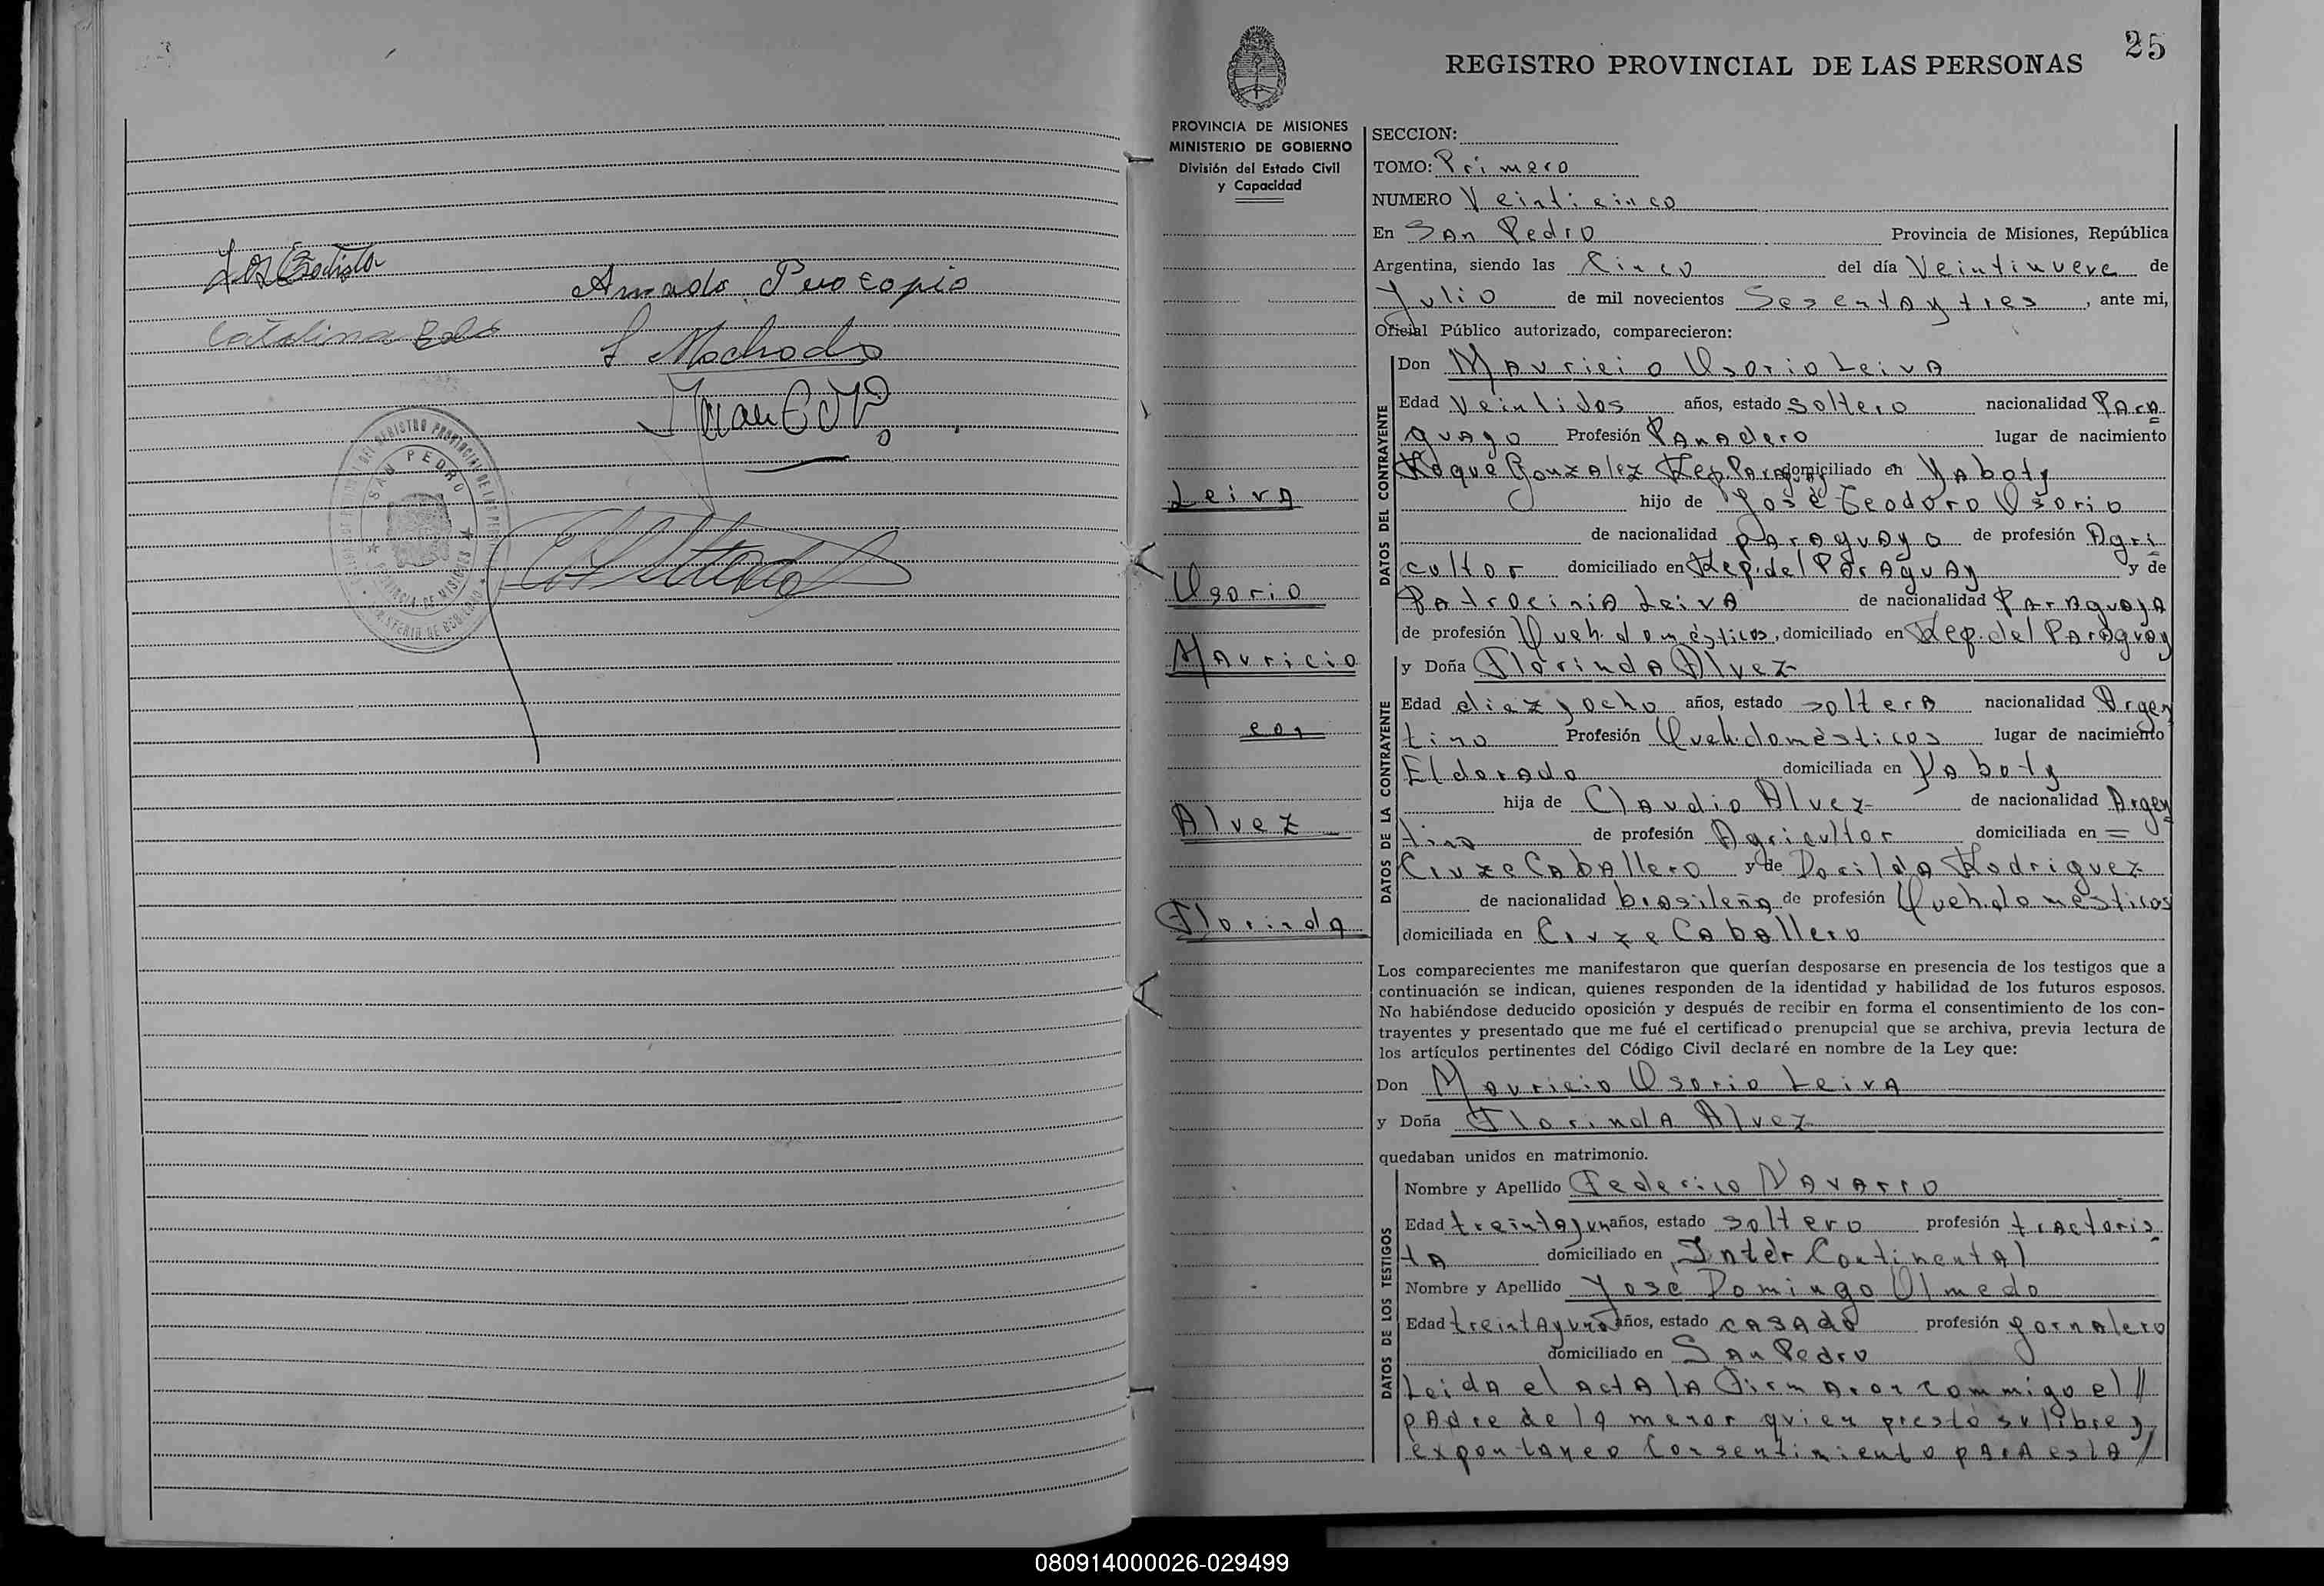 Amado Procopio
Catalina
Machado
Juan
SAN PEDRO
PROVINCIA DE MISIONES
25
REGISTRO PROVINCIAL DE LAS PERSONAS
PROVINCIA DE MISIONES
MINISTERIO DE GOBIERNO
División del Estado Civil
y Capacidad
Leiva
Osorio
Mauricio
con
Alvez
Florinda
SECCION:
TOMO: Primero
NUMERO Veinticinco
En San Pedro Provincia de Misiones, República
Argentina, siendo las Cinco del día Veintinueve de
Julio de mil novecientos Sesenta y tres, ante mi,
Oficial Público autorizado, comparecieron:
DATOS DEL CONTRAYENTE
Don Mauricio Osorio Leiva
Edad Veintidos años, estado soltero nacionalidad Para=
guayo Profesión Panadero lugar de nacimiento
Roque Gonzalez Rep. Paraguay domiciliado en Yaboty
hijo de José Teodoro Osorio
de nacionalidad paraguayo de profesión Agri=
cultor domiciliado en Rep. del Paraguay y de
Patrocinia Leiva de nacionalidad Paraguaya
de profesión Queh. domésticos, domiciliado en Rep. del Paraguay
DATOS DE LA CONTRAYENTE
y Doña Florinda Alvez
Edad diez y ocho años, estado soltera nacionalidad Argen
tino Profesión Queh. domèsticos lugar de nacimiento
Eldorado domiciliada en Yaboty
hija de Claudio Alvez de nacionalidad Argen=
tino de profesión Agricultor domiciliada en =
Cruze Caballero y de Docilda Rodriguez
de nacionalidad brasileña de profesión Queh. domésticos
domiciliada en Cruze Caballero
Los comparecientes me manifestaron que querían desposarse en presencia de los testigos que a
continuación se indican, quienes responden de la identidad y habilidad de los futuros esposos.
No habiéndose deducido oposición y después de recibir en forma el consentimiento de los con-
trayentes y presentado que me fué el certificado prenupcial que se archiva, previa lectura de
los artículos pertinentes del Código Civil declaré en nombre de la Ley que:
Don Mauricio Osorio Leiva
y Doña Florinda Alvez
quedaban unidos en matrimonio.
DATOS DE LOS TESTIGOS
Nombre y Apellido Federico Navarro
Edad treinta y un años, estado soltero profesión tractoris=
ta domiciliado en Inter Continental
Nombre y Apellido José Domingo Olmedo
Edad treinta y uno años, estado casado profesión jornalero
domiciliado en San Pedro
Leida el acta la firmaron commigo el //
padre de la menor quien prestó su libre y
expontaneo consentimiento para esta /
080914000026-029499